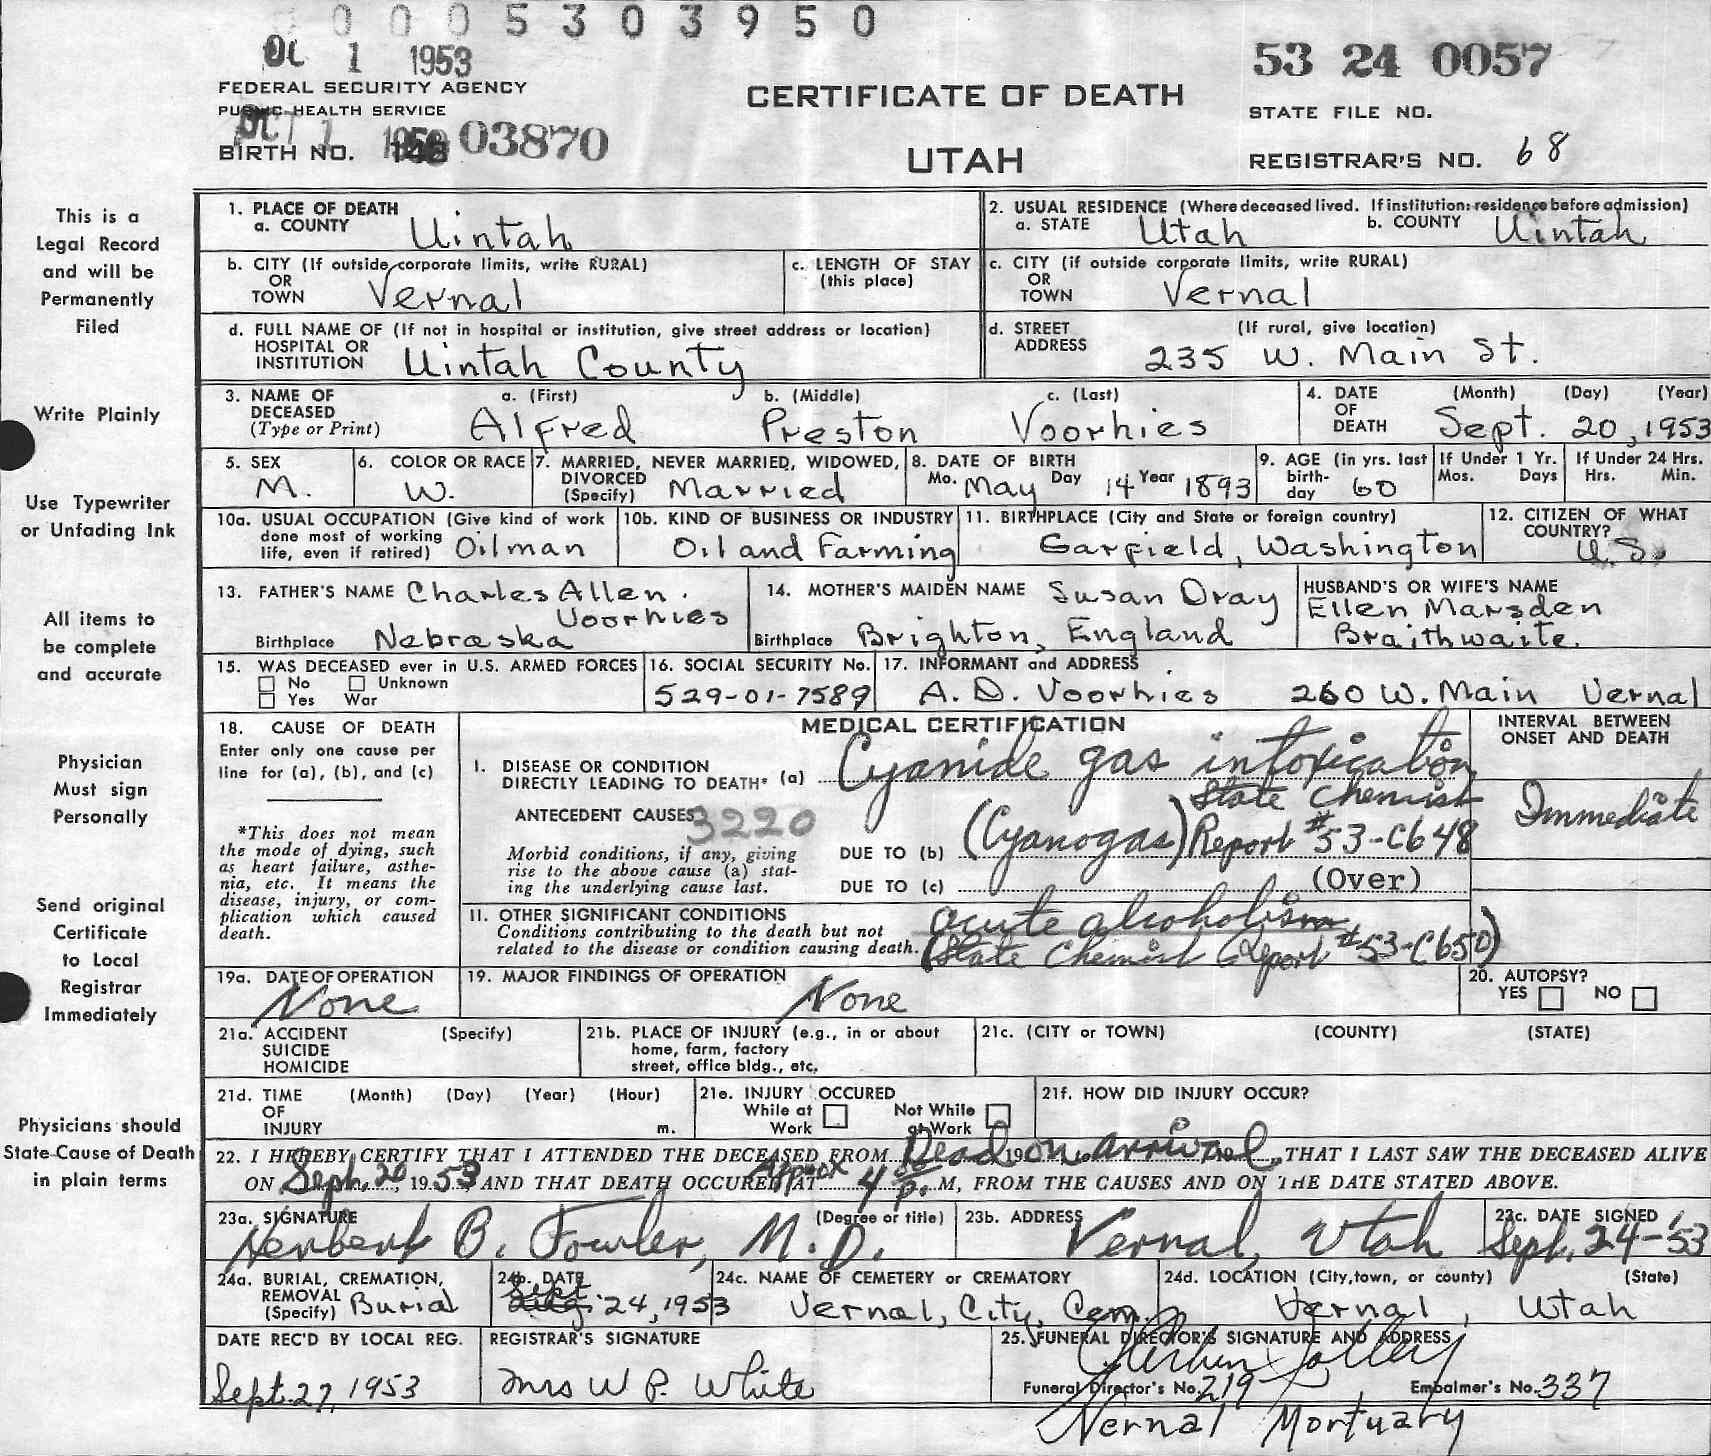 0 0 0 5 3 0 3 9 5 0
1 1953
53 24 0057
FEDERAL SECURITY AGENCY
PUBLIC HEALTH SERVICE
CERTIFICATE OF DEATH
STATE FILE NO.
OCT 1
BIRTH NO. 03870
UTAH
REGISTRAR'S NO. 68
This is a
Legal Record
and will be
Permanently
Filed
Write Plainly
Use Typewriter
or Unfading Ink
All items to
be complete
and accurate
Physician
Must sign
Personally
Send original
Certificate
to Local
Registrar
Immediately
Physicians should
State Cause of Death
in plain terms
1. PLACE OF DEATH
a. COUNTY Uintah
2. USUAL RESIDENCE (Where deceased lived. If institution: residence before admission)
a. STATE Utah b. COUNTY Uintah
b. CITY (If outside corporate limits, write RURAL)
OR
TOWN Vernal
c. LENGTH OF STAY
(this place)
c. CITY (if outside corporate limits, write RURAL)
OR
TOWN Vernal
d. FULL NAME OF (If not in hospital or institution, give street address or location)
HOSPITAL OR
INSTITUTION Uintah County
d. STREET (If rural, give location)
ADDRESS 235 W. Main St.
3. NAME OF a. (First) b. (Middle) c. (Last)
DECEASED
(Type or Print) Alfred Preston Voorhies
4. DATE (Month) (Day) (Year)
OF
DEATH Sept. 20, 1953
5. SEX
M.
6. COLOR OR RACE
W.
7. MARRIED, NEVER MARRIED, WIDOWED,
DIVORCED
(Specify) Married
8. DATE OF BIRTH
Mo. May Day 14 Year 1893
9. AGE (in yrs. last
birth-
day 60
If Under 1 Yr.
Mos. Days
If Under 24 Hrs.
Hrs. Min.
10a. USUAL OCCUPATION (Give kind of work
done most of working
life, even if retired) Oilman
10b. KIND OF BUSINESS OR INDUSTRY
Oil and Farming
11. BIRTHPLACE (City and State or foreign country)
Garfield, Washington
12. CITIZEN OF WHAT
COUNTRY?
U.S.
13. FATHER'S NAME Charles Allen
Voorhies
Birthplace Nebraska
14. MOTHER'S MAIDEN NAME Susan Dray
Birthplace Brighton, England
HUSBAND'S OR WIFE'S NAME
Ellen Marsden
Braithwaite.
15. WAS DECEASED ever in U.S. ARMED FORCES
No Unknown
Yes War
16. SOCIAL SECURITY No.
529-01-7589
17. INFORMANT and ADDRESS
A. D. Voorhies 260 W. Main Vernal
18. CAUSE OF DEATH
Enter only one cause per
line for (a), (b), and (c)
*This does not mean
the mode of dying, such
as heart failure, asthe-
nia, etc. It means the
disease, injury, or com-
plication which caused
death.
MEDICAL CERTIFICATION
I. DISEASE OR CONDITION
DIRECTLY LEADING TO DEATH* (a) Cyanide gas intoxication
ANTECEDENT CAUSES 3220
State Chemist
Morbid conditions, if any, giving
rise to the above cause (a) stat-
ing the underlying cause last.
DUE TO (b) (Cyanogas) Report #53-C648
DUE TO (c) (Over)
INTERVAL BETWEEN
ONSET AND DEATH
Immediate
11. OTHER SIGNIFICANT CONDITIONS
Conditions contributing to the death but not
related to the disease or condition causing death.
acute alcoholism
(State Chemist Report #53-C650)
19a. DATE OF OPERATION
None
19. MAJOR FINDINGS OF OPERATION
None
20. AUTOPSY?
YES NO
21a. ACCIDENT (Specify)
SUICIDE
HOMICIDE
21b. PLACE OF INJURY (e.g., in or about
home, farm, factory
street, office bldg., etc.
21c. (CITY or TOWN) (COUNTY) (STATE)
21d. TIME (Month) (Day) (Year) (Hour)
OF
INJURY m.
21e. INJURY OCCURED
While at Work Not While at Work
21f. HOW DID INJURY OCCUR?
22. I HEREBY CERTIFY THAT I ATTENDED THE DECEASED FROM Dead on arrival, THAT I LAST SAW THE DECEASED ALIVE
ON Sept. 20, 1953, AND THAT DEATH OCCURED AT Approx 4 P. M, FROM THE CAUSES AND ON THE DATE STATED ABOVE.
23a. SIGNATURE (Degree or title)
Herbert B. Fowler, M.D.
23b. ADDRESS
Vernal, Utah
23c. DATE SIGNED
Sept. 24-53
24a. BURIAL, CREMATION,
REMOVAL
(Specify) Burial
24b. DATE
Sept 24, 1953
24c. NAME OF CEMETERY or CREMATORY
Vernal, City, Cem.
24d. LOCATION (City, town, or county) (State)
Vernal, Utah
DATE REC'D BY LOCAL REG.
Sept. 27, 1953
REGISTRAR'S SIGNATURE
Mrs W P. White
25. FUNERAL DIRECTOR'S SIGNATURE AND ADDRESS
Funeral Director's No. 219 Embalmer's No. 337
Vernal Mortuary